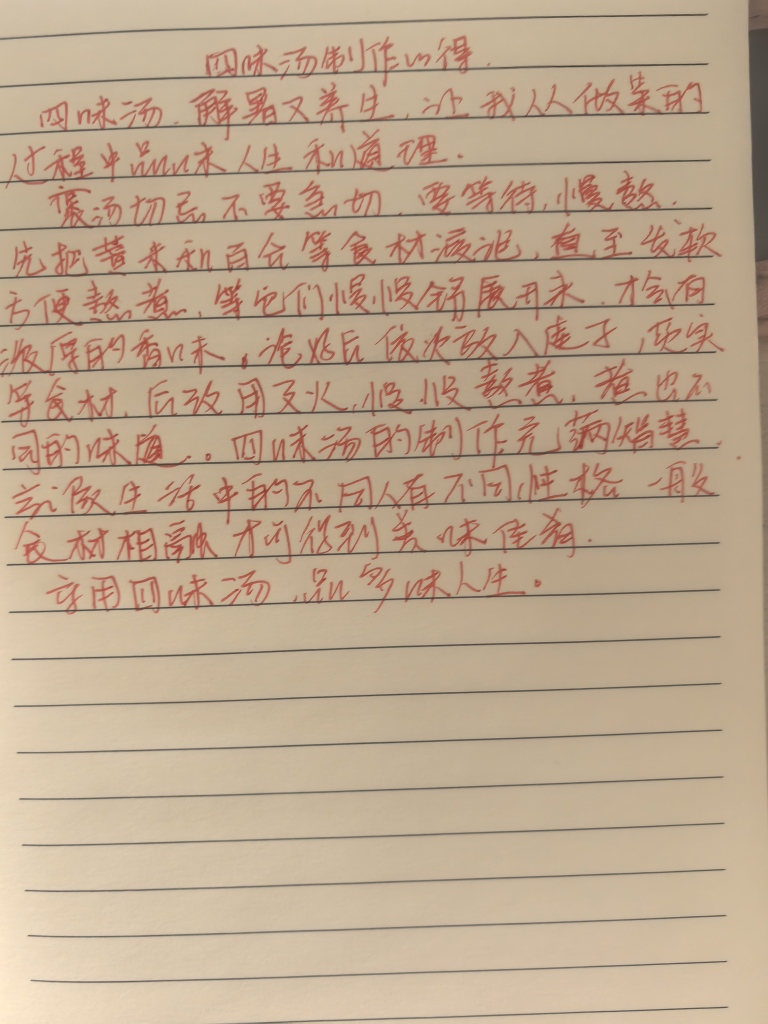 四味汤制作心得.
四味汤.解暑又养生,让我从从做菜的
过程中品味人生和道理.
褒汤切忌不要急切.要等待,慢熬.
先把薏米和百合等食材浸泡,直至发软
方便熬煮,等它们慢慢舒展开来.才会有
浓厚的香味。泡好后依次放入莲子,芡实
等食材.后改用文火,慢慢熬煮.煮出不
同的味道。四味汤的制作充满智慧.
就像生活中的不同人有不同性格一般
食材相融才可得到美味佳肴.
享用四味汤.品多味人生。